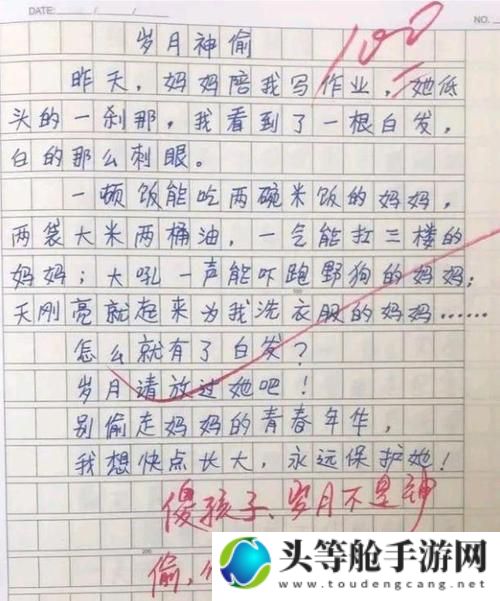 DATE:
NO.
100
岁月神偷
昨天，妈妈陪我写作业，她低
头的一刹那，我看到了一根白发，
白的那么刺眼。
一顿饭能吃两碗米饭的妈妈，
两袋大米两桶油，一气能扛三楼的
妈妈；大吼一声能吓跑野狗的妈妈；
天刚亮就起来为我洗衣服的妈妈……
怎么就有了白发？
岁月请放过她吧！
别偷走妈妈的青春年华，
我想快点长大，永远保护她！
傻孩子、岁月不是神
偷，
头等舱手游网
www.toudengcang.net